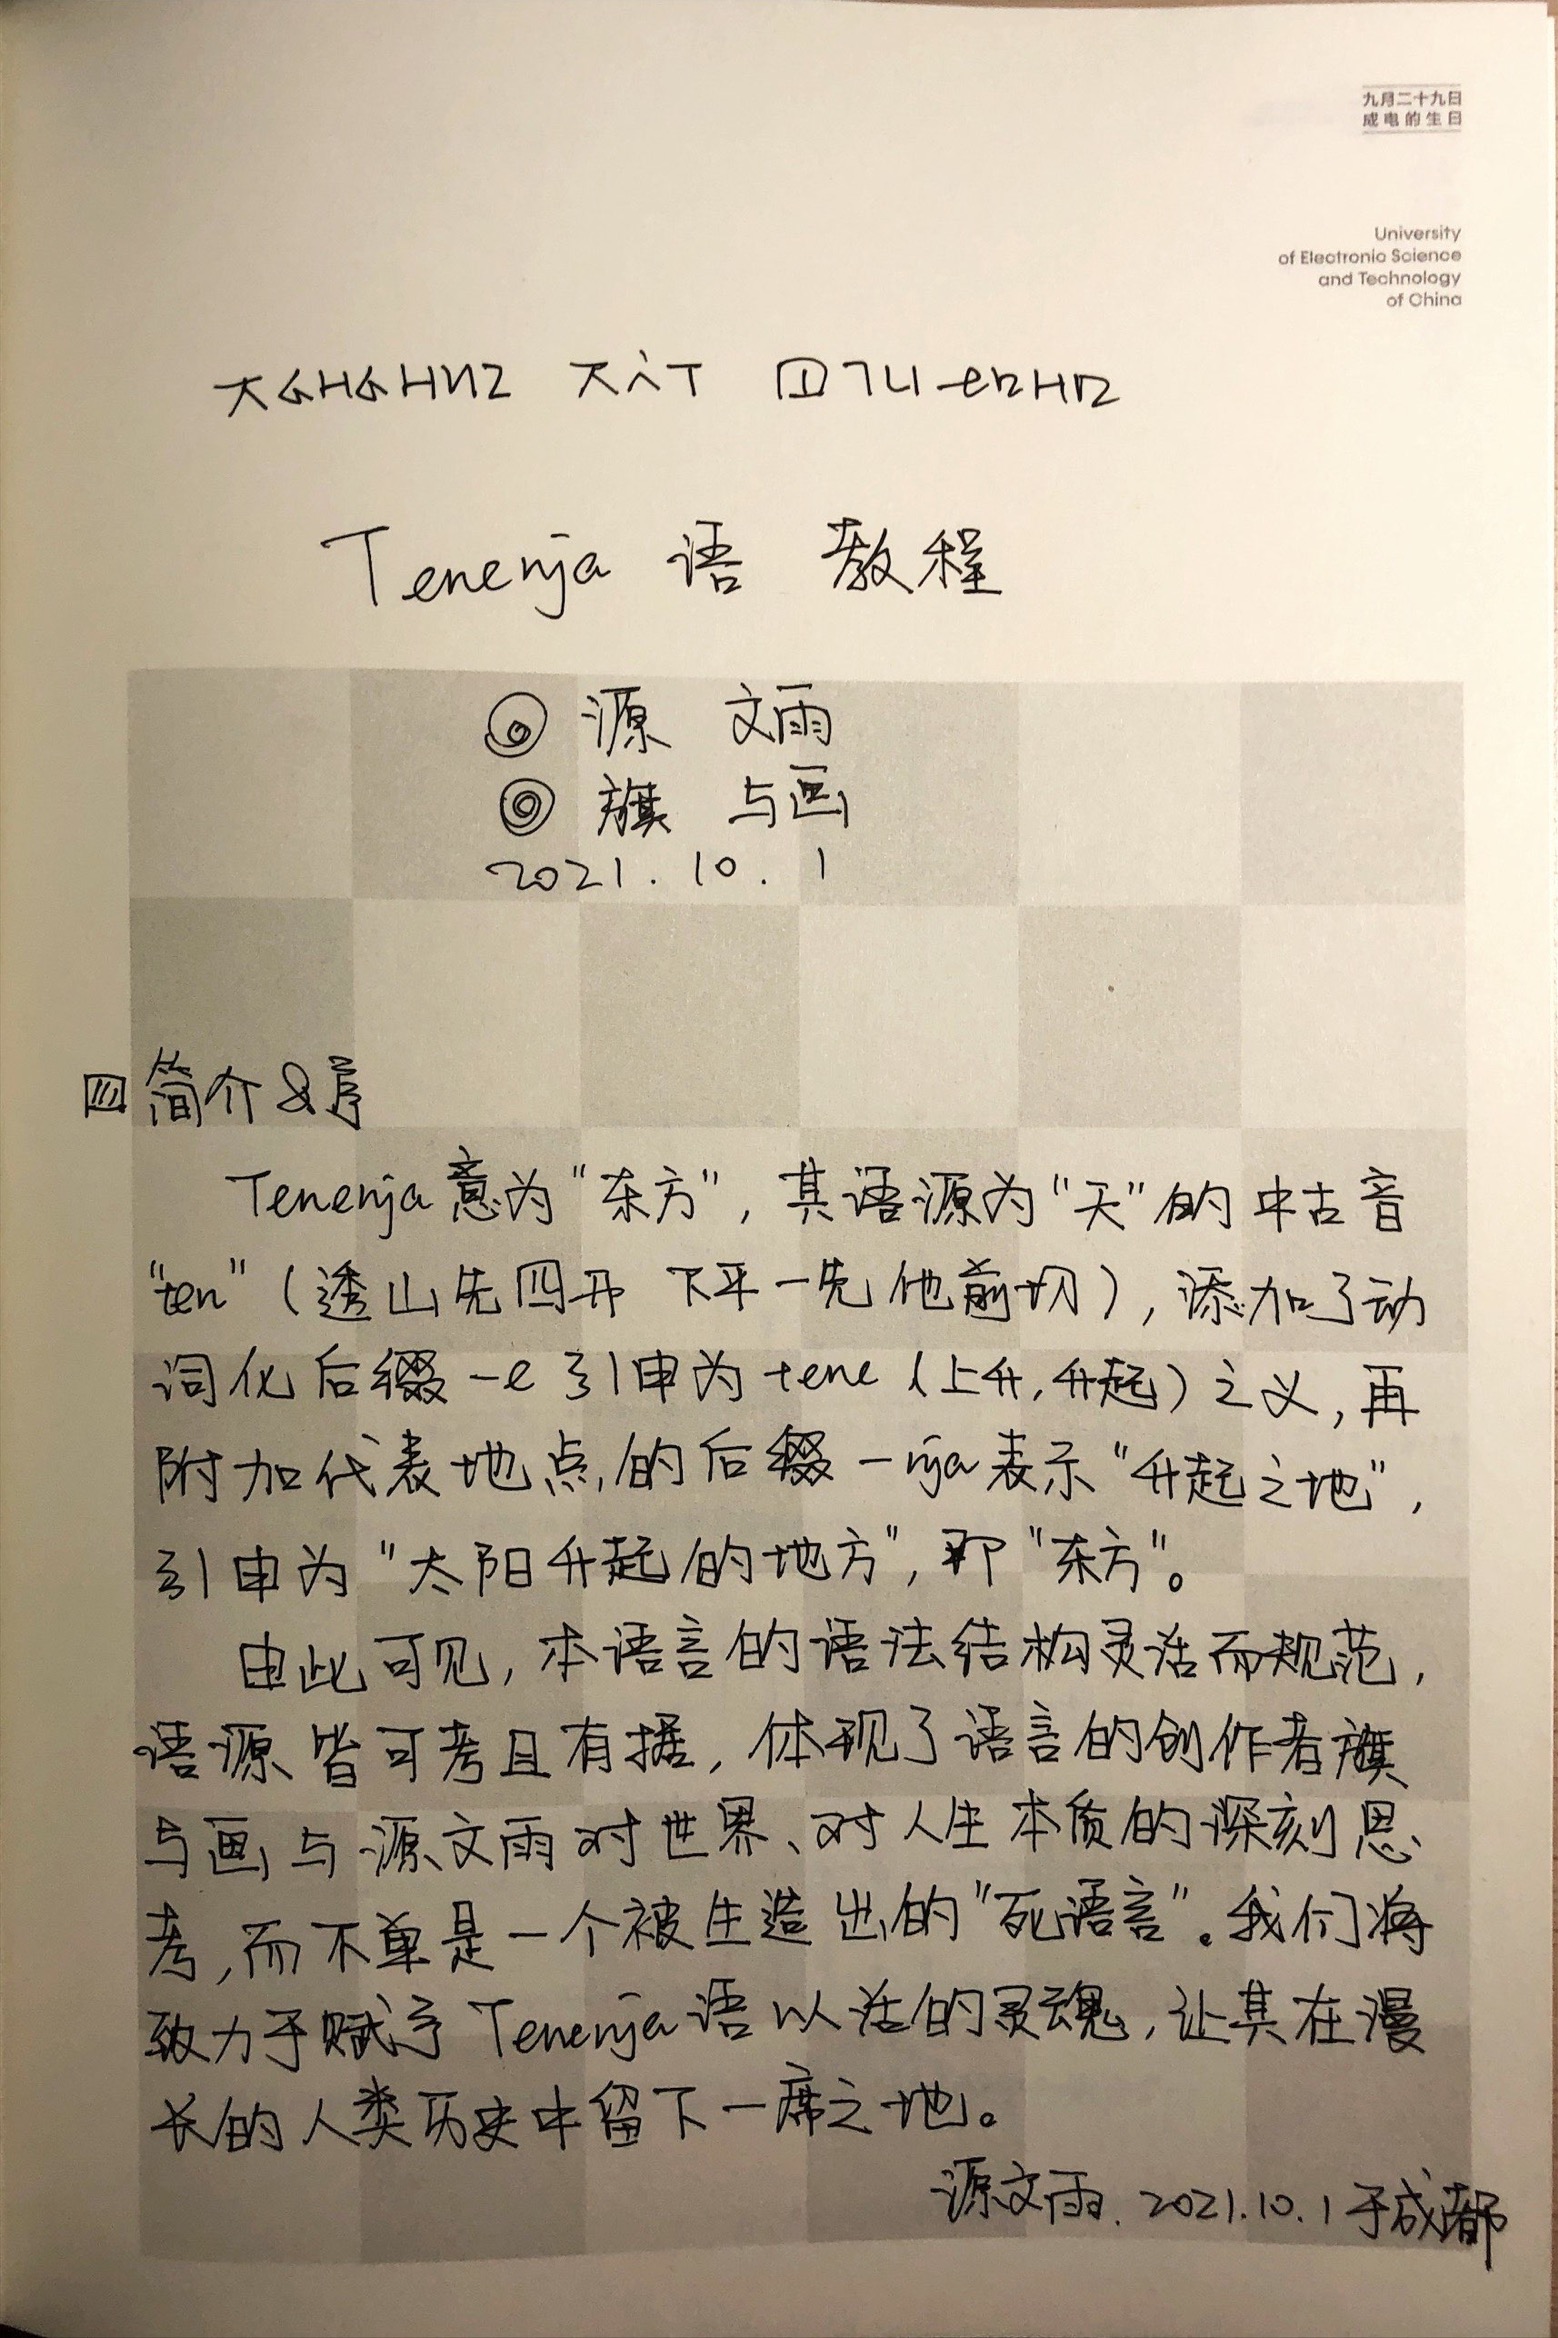 九月二十九日
成电的生日
University
of Electronic Science
and Technology
of China
Tenenja 语 教程
源 文雨
旗 与画
2021.10.1
简介&序
Tenenja意为"东方",其语源为"天"的中古音
"ten"(透山先四开 下平一先 他前切),添加了动
词化后缀-e引申为tene(上升,升起)之义,再
附加代表地点的后缀-nja表示"升起之地",
引申为"太阳升起的地方",即"东方"。
由此可见,本语言的语法结构灵活而规范,
语源皆可考且有据,体现了语言的创作者旗
与画与源文雨对世界、对人生本质的深刻思
考,而不单是一个被生造出的"死语言"。我们将
致力于赋予Tenenja语以活的灵魂,让其在漫
长的人类历史中留下一席之地。
源文雨.2021.10.1于成都